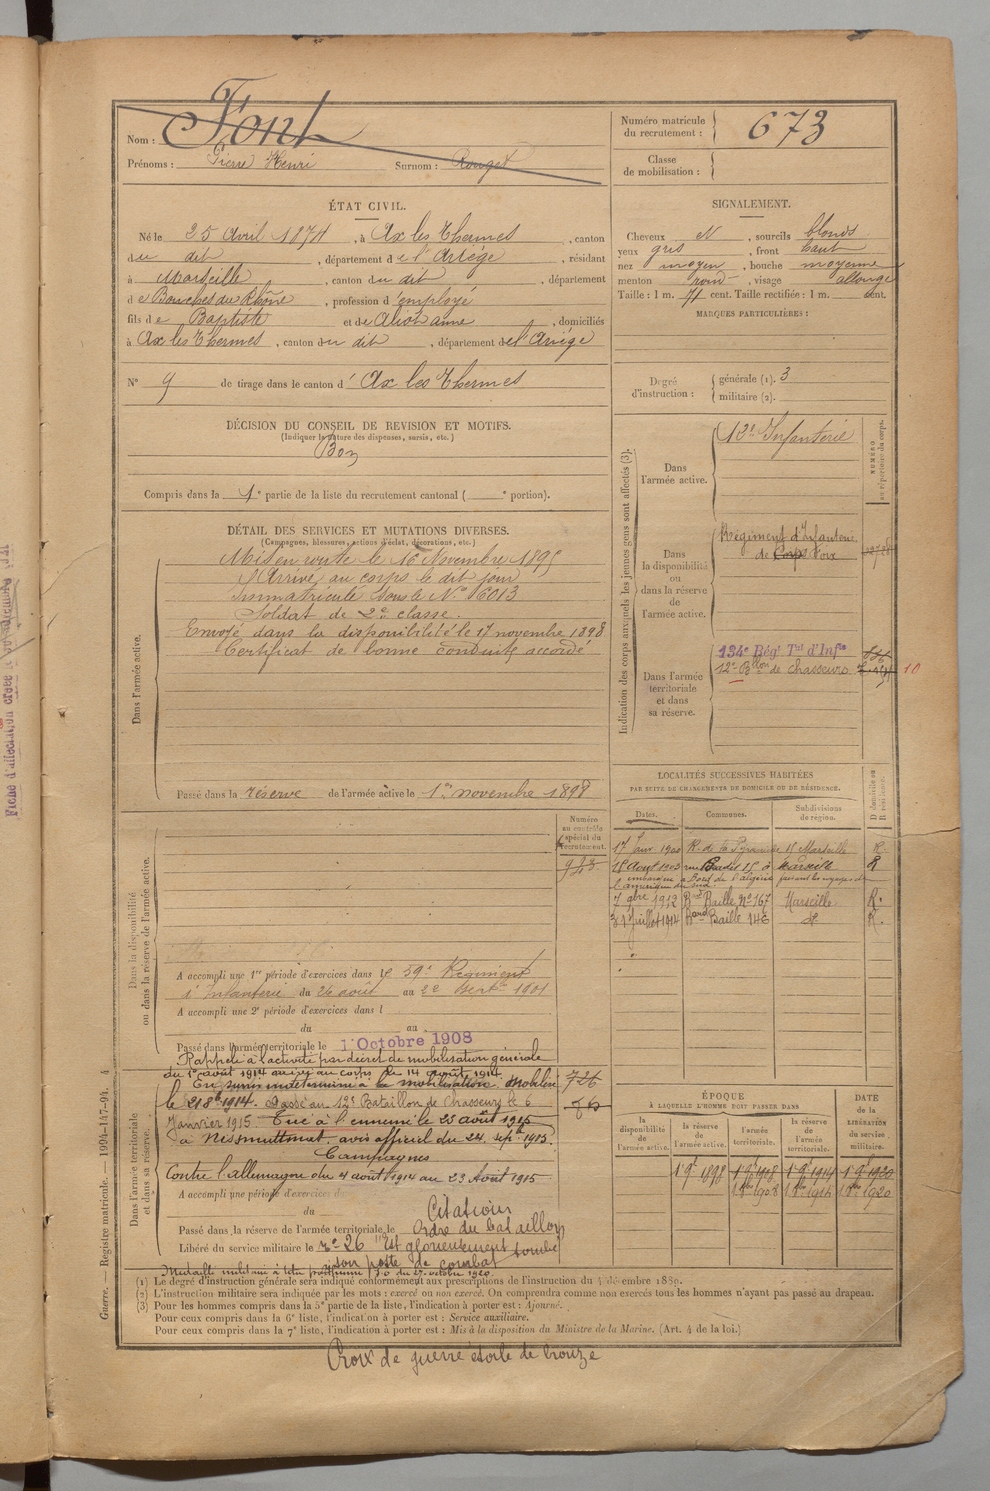 Nom : Font
Prénoms : Pierre Henri Surnom : Rouget
Numéro matricule du recrutement : 673
Classe de mobilisation :
ÉTAT CIVIL.
Né le 25 Avril 1874, à Ax les Thermes, canton
du dit, département de l'Ariège, résidant
à Marseille, canton du dit, département
de Bouches du Rhône, profession d'employé
fils de Baptiste et de Aliot anne, domiciliés
à Ax les Thermes, canton du dit, département de l'Ariège
N° 9 de tirage dans le canton d'Ax les Thermes
SIGNALEMENT.
Cheveux et, sourcils blonds
yeux gris, front haut
nez moyen, bouche moyenne
menton rond, visage allongé
Taille : 1 m. cent. Taille rectifiée : 1 m. cent.
MARQUES PARTICULIÈRES :
Degré d'instruction : générale (1). 3
militaire (2).
DÉCISION DU CONSEIL DE REVISION ET MOTIFS.
(Indiquer la nature des dispenses, sursis, etc.)
Bon
Compris dans la 1e partie de la liste du recrutement cantonal ( e portion).
DÉTAIL DES SERVICES ET MUTATIONS DIVERSES.
(Campagnes, blessures, actions d'éclat, décorations, etc.)
Dans l'armée active.
Mis en route le 16 Novembre 1895
Arrivé au corps le dit jour
Immatriculé sous le N° 6013
Soldat de 2e classe.
Envoyé dans la disponibilité le 17 novembre 1898
Certificat de bonne conduite accordé
Passé dans la réserve de l'armée active le 1er novembre 1898
Indication des corps auxquels les jeunes gens sont affectés (3).
NUMÉRO au répertoire du corps.
Dans l'armée active.
12e Infanterie
Dans la disponibilité ou dans la réserve de l'armée active.
Régiment d'Infanterie
de Corps Foix
Dans l'armée territoriale et dans sa réserve.
134e Régt Tal d'Infie
12e Bllon de chasseurs 10
LOCALITÉS SUCCESSIVES HABITÉES
PAR SUITE DE CHANGEMENTS DE DOMICILE OU DE RÉSIDENCE.
Dates. Communes. Subdivisions de région. D domicile ou R résidence.
17 Janv 1900 R. de la Pyramide 15 Marseille R
18 Août 1903 rue Bardes 15 à Marseille R
embarqué à bord de l'Algérie faisant les voyages de
l'amérique du sud
7 9bre 1912 Bd Baille, No 167 Marseille R.
31 Juillet 1914 Bard Baille 146 R.
Dans la disponibilité ou dans la réserve de l'armée active.
Numéro au contrôle spécial du recrutement.
A accompli une 1re période d'exercices dans le 59e Régiment
d'Infanterie du 26 août au 22 Septbre 1901
A accompli une 2e période d'exercices dans l
du au
Passé dans l'armée territoriale le 1 Octobre 1908
Dans l'armée territoriale et dans sa réserve.
Rappelé à l'activité par décret de mobilisation générale
du 1er août 1914 arrivé au corps le 14 août 1914
En sursis indéterminé à la mobilisation. Mobilisé 726
le 21 8b 1914. Passé au 12e Bataillon de Chasseurs le 6
Janvier 1915. Tué à l'ennemi le 23 août 1915
à Nissmuttmat. avis officiel du 24. sept. 1915.
Campagnes
Contre l'allemagne du 4 août 1914 au 23 Août 1915
A accompli une période d'exercices d
du
Citation
Passé dans la réserve de l'armée territoriale le Ordre du bataillon
Libéré du service militaire le no 26 "Est glorieusement tombé
à son poste de combat
Medaille militaire à titre posthume J.O du 27 octobre 1920.
ÉPOQUE
À LAQUELLE L'HOMME DOIT PASSER DANS
DATE DE LA LIBÉRATION du service militaire.
la disponibilité de l'armée active. la réserve de l'armée active. l'armée territoriale. la réserve de l'armée territoriale.
1er 9bre 1898 1er 9bre 1908 1er 9bre 1914 1er 9bre 1920
1 8bre 1908 1 8bre 1914 1 8bre 1920
(1) Le degré d'instruction générale sera indiqué conformément aux prescriptions de l'instruction du 4 décembre 1889.
(2) L'instruction militaire sera indiquée par les mots : exercé ou non exercé. On comprendra comme non exercés tous les hommes n'ayant pas passé au drapeau.
(3) Pour les hommes compris dans la 5e partie de la liste, l'indication à porter est : Ajourné.
Pour ceux compris dans la 6e liste, l'indication à porter est : Service auxiliaire.
Pour ceux compris dans la 7e liste, l'indication à porter est : Mis à la disposition du Ministre de la Marine. (Art. 4 de la loi.)
Croix de guerre étoile de bronze
Guerre. — Registre matricule. — 1994-147-94. 4